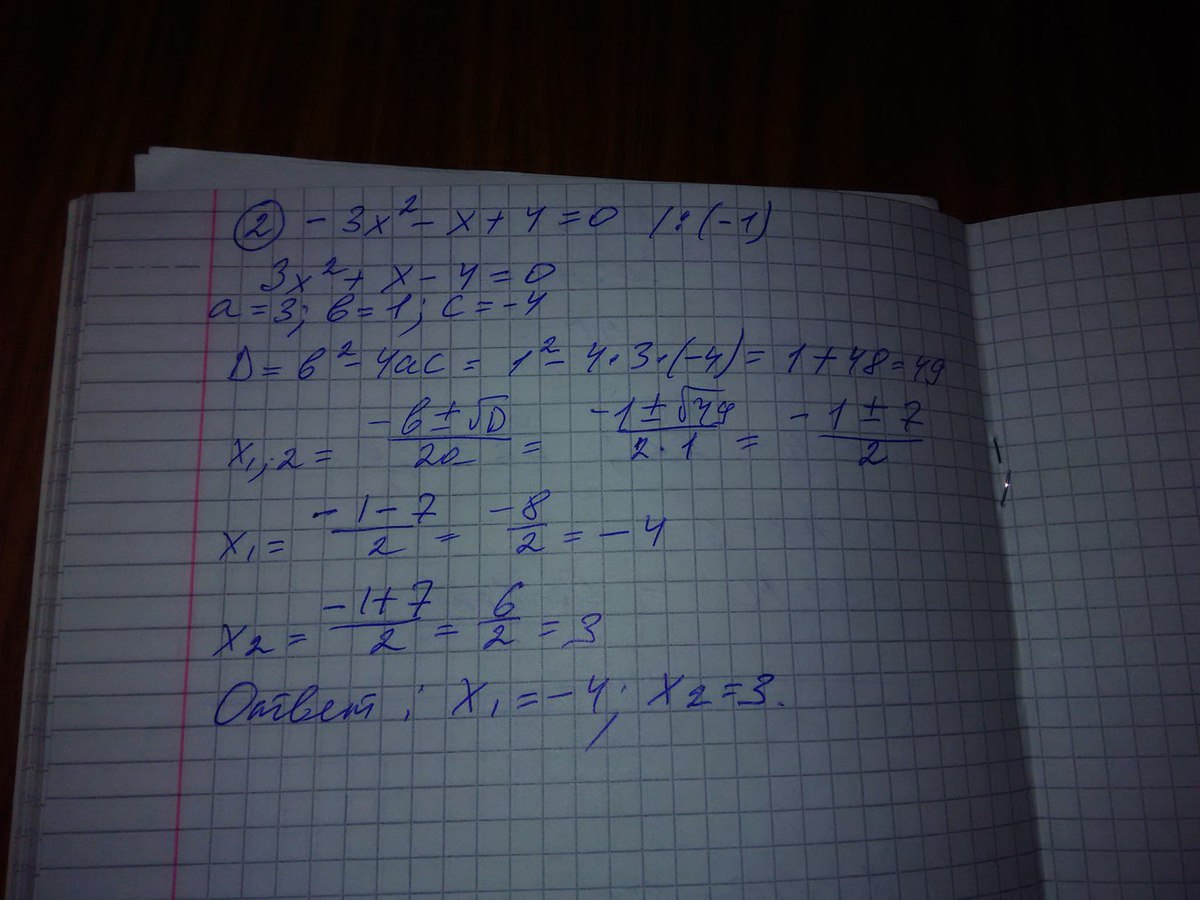 ② - 3x² - x + 4 = 0 /:(-1)
3x² + x - 4 = 0
a = 3; в = 1; c = -4
D = в² - 4ac = 1² - 4·3·(-4) = 1 + 48 = 49
x₁;₂ = (-в ± √D)/(2a) = (-1 ± √49)/(2·1) = (-1 ± 7)/2
x₁ = (-1 - 7)/2 = -8/2 = -4
x₂ = (-1 + 7)/2 = 6/2 = 3
Ответ: x₁ = -4; x₂ = 3.